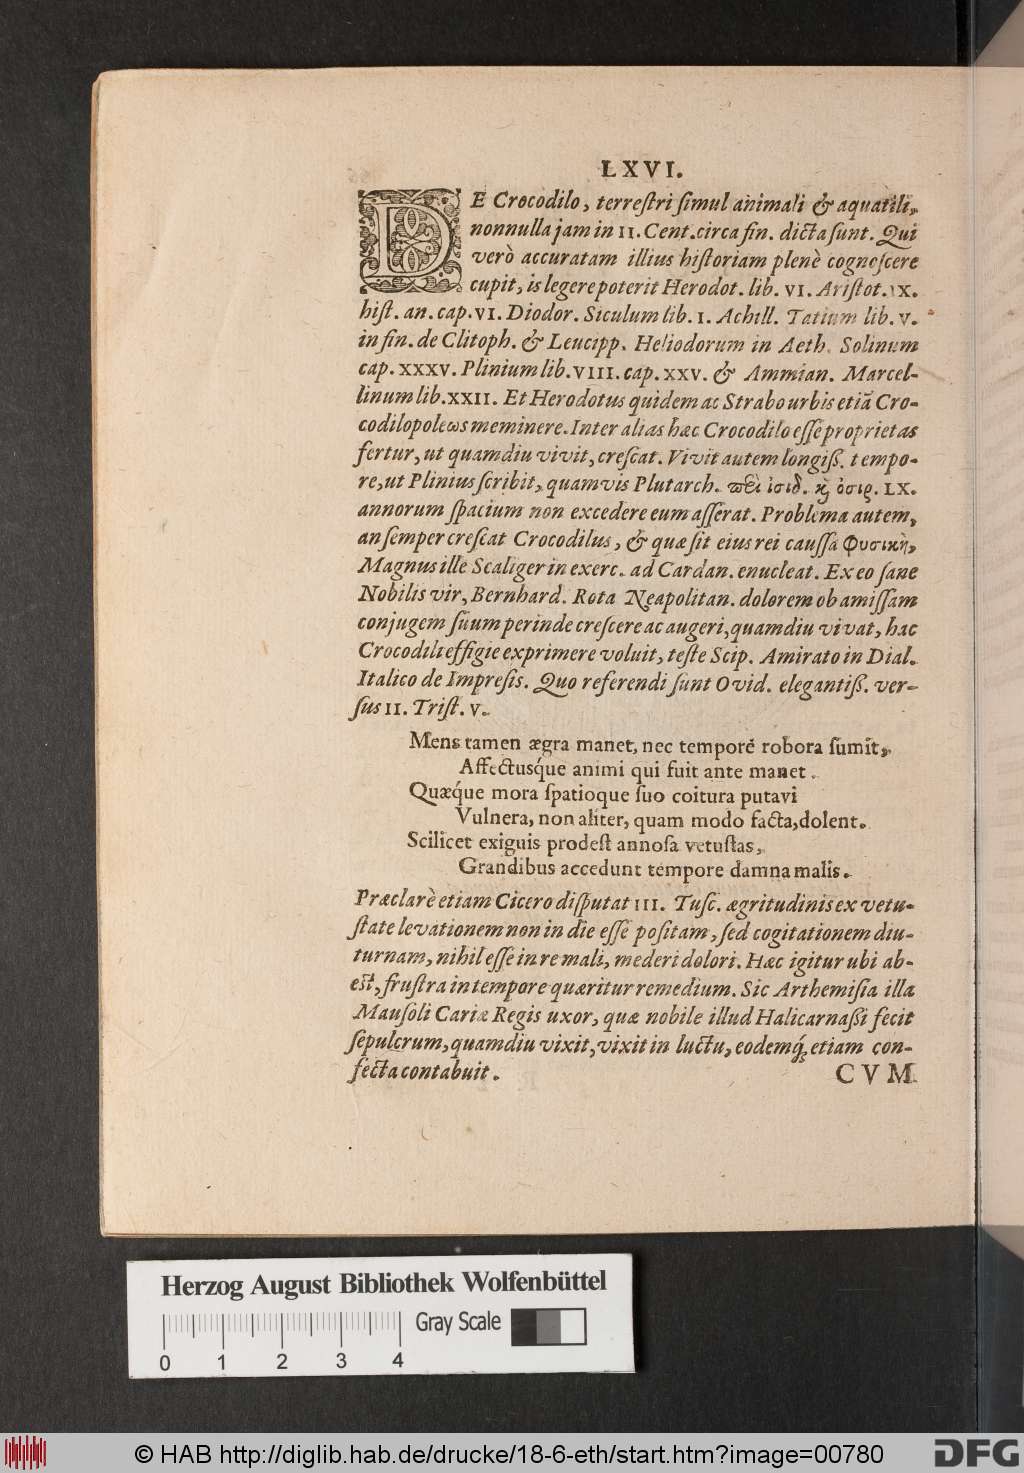 LXVI.
DE Crocodilo, terreſtri ſimul animali & aquatili,
nonnulla jam in II. Cent. circa fin. dicta ſunt. Qui
verò accuratam illius hiſtoriam plenè cognoſcere
cupit, is legere poterit Herodot. lib. VI. Ariſtot. IX.
hiſt. an. cap. VI. Diodor. Siculum lib. I. Achill. Tatium lib. V.
in fin. de Clitoph. & Leucipp. Heliodorum in Aeth. Solinum
cap. XXXV. Plinium lib. VIII. cap. XXV. & Ammian. Marcel-
linum lib. XXII. Et Herodotus quidem ac Strabo urbis etiã Cro-
codilopoleωs meminere. Inter alias hæc Crocodilo eſſe proprietas
fertur, ut quamdiu vivit, creſcat. Vivit autem longiß. tempo-
re, ut Plinius ſcribit, quamvis Plutarch. περὶ ἰσιδ. κὶ ὀσιρ. LX.
annorum ſpacium non excedere eum aſſerat. Problema autem,
an ſemper creſcat Crocodilus, & quæ ſit eius rei cauſſa φυσικὴ,
Magnus ille Scaliger in exerc. ad Cardan. enucleat. Ex eo ſane
Nobilis vir, Bernhard. Rota Neapolitan. dolorem ob amiſſam
conjugem ſuum perinde creſcere ac augeri, quamdiu vivat, hac
Crocodili effigie exprimere voluit, teſte Scip. Amirato in Dial.
Italico de Impreſis. Quo referendi ſunt Ovid. elegantiß. ver-
ſus II. Triſt. V.
Mens tamen ægra manet, nec temporé robora ſumit,
Affectusq́ue animi qui fuit ante manet.
Quæq́ue mora ſpatioque ſuo coitura putavi
Vulnera, non aliter, quam modo facta, dolent.
Scilicet exiguis prodeſt annoſa vetuſtas,
Grandibus accedunt tempore damna malis.
Præclarè etiam Cicero diſputat III. Tuſc. ægritudinis ex vetu-
ſtate levationem non in die eſſe poſitam, ſed cogitationem diu-
turnam, nihil eſſe in re mali, mederi dolori. Hæc igitur ubi ab-
eſt, fruſtra in tempore quæritur remedium. Sic Arthemiſia illa
Mauſoli Cariæ Regis uxor, quæ nobile illud Halicarnaßi fecit
ſepulcrum, quamdiu vixit, vixit in luctu, eodemq́; etiam con-
fecta contabuit.
CVM
Herzog August Bibliothek Wolfenbüttel
Gray Scale
0 1 2 3 4
© HAB http://diglib.hab.de/drucke/18-6-eth/start.htm?image=00780
DFG